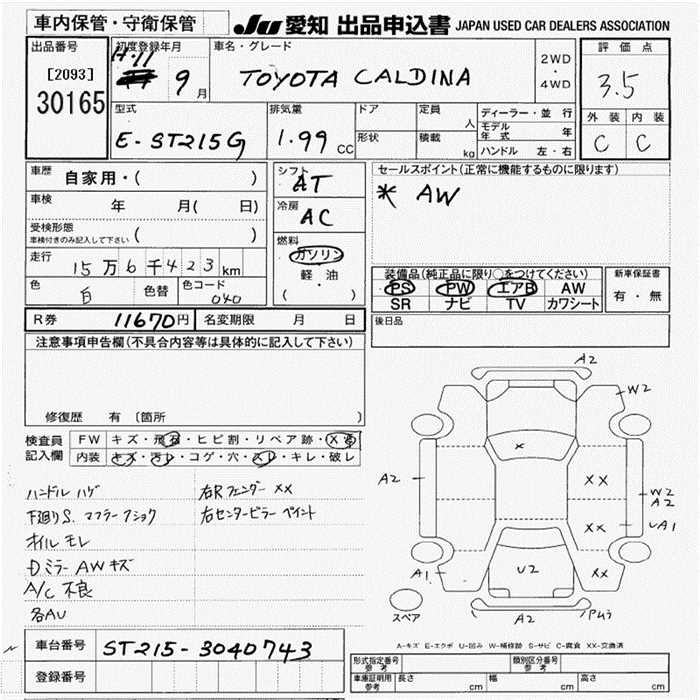 車内保管・守衛保管
JU 愛知 出品申込書 JAPAN USED CAR DEALERS ASSOCIATION
出品番号
[2093]
30165
初度登録年月
H.11 9月
車名・グレード
TOYOTA CALDINA
2WD
・
4WD
評価点
3.5
外装 内装
C C
型式
E-ST215G
排気量
1.99 CC
ドア
形状
定員
人
積載
kg
ディーラー・並行
モデル年式 年
ハンドル 左・右
車歴
自家用・( )
車検
年 月( 日)
受検形態
車検付きのみ記入して下さい
( )
走行
15万6千423km
色
白
色替
色コード
040
シフト
AT
冷房
AC
燃料
ガソリン
軽・油
( )
セールスポイント(正常に機能するものに限ります)
* AW
装備品(純正品に限り○をつけてください)
PS PW エアB AW
SR ナビ TV カワシート
新車保証書
有・無
R券 11670円 名変期限 月 日
後日品
注意事項申告欄(不具合内容等は具体的に記入して下さい)
修復歴 有 〔箇所 〕
検査員
記入欄
FW キズ・飛石・ヒビ割・リペア跡・
内装 キズ・汚レ・コゲ・穴・スレ・キレ・破レ
ハンドル ハゲ
下廻りS. マフラーフショク
オイルモレ
Dミラー AWキズ
A/C 不良
各AU
右Rフェンダー XX
右センターピラー ペイント
A2
W2
X
A2
XX
W2
A2
XX
UA1
A1
U2
XX
スペア
A2
A-キズ E-エクボ U-凹み W-補修跡 S-サビ C-腐食 XX-交換済
車台番号 ST215-3040743
登録番号
形式指定番号
参考
類別区分番号
参考
車庫証明用
参考
長さ cm 幅 cm 高さ cm